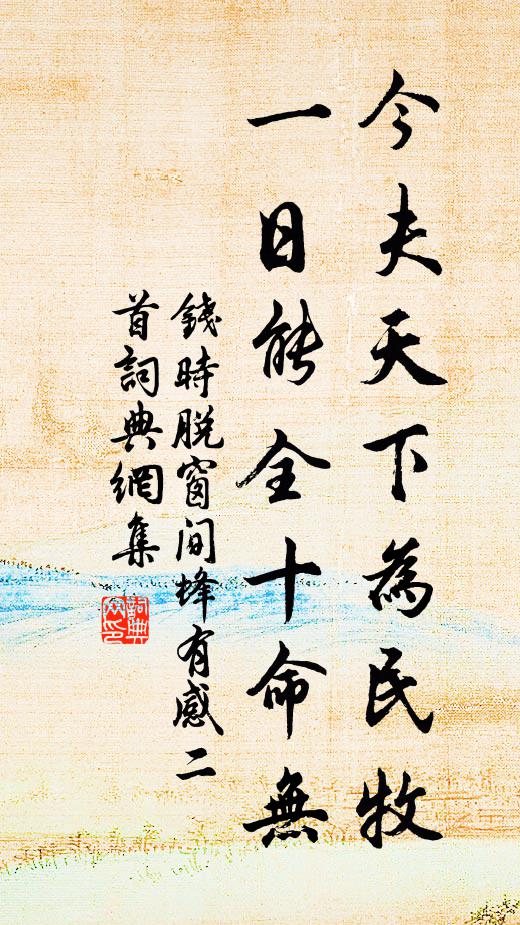 今夫天下為民牧
一日能全十命無
錢時脱窗间蜂有感二
首詞典網集